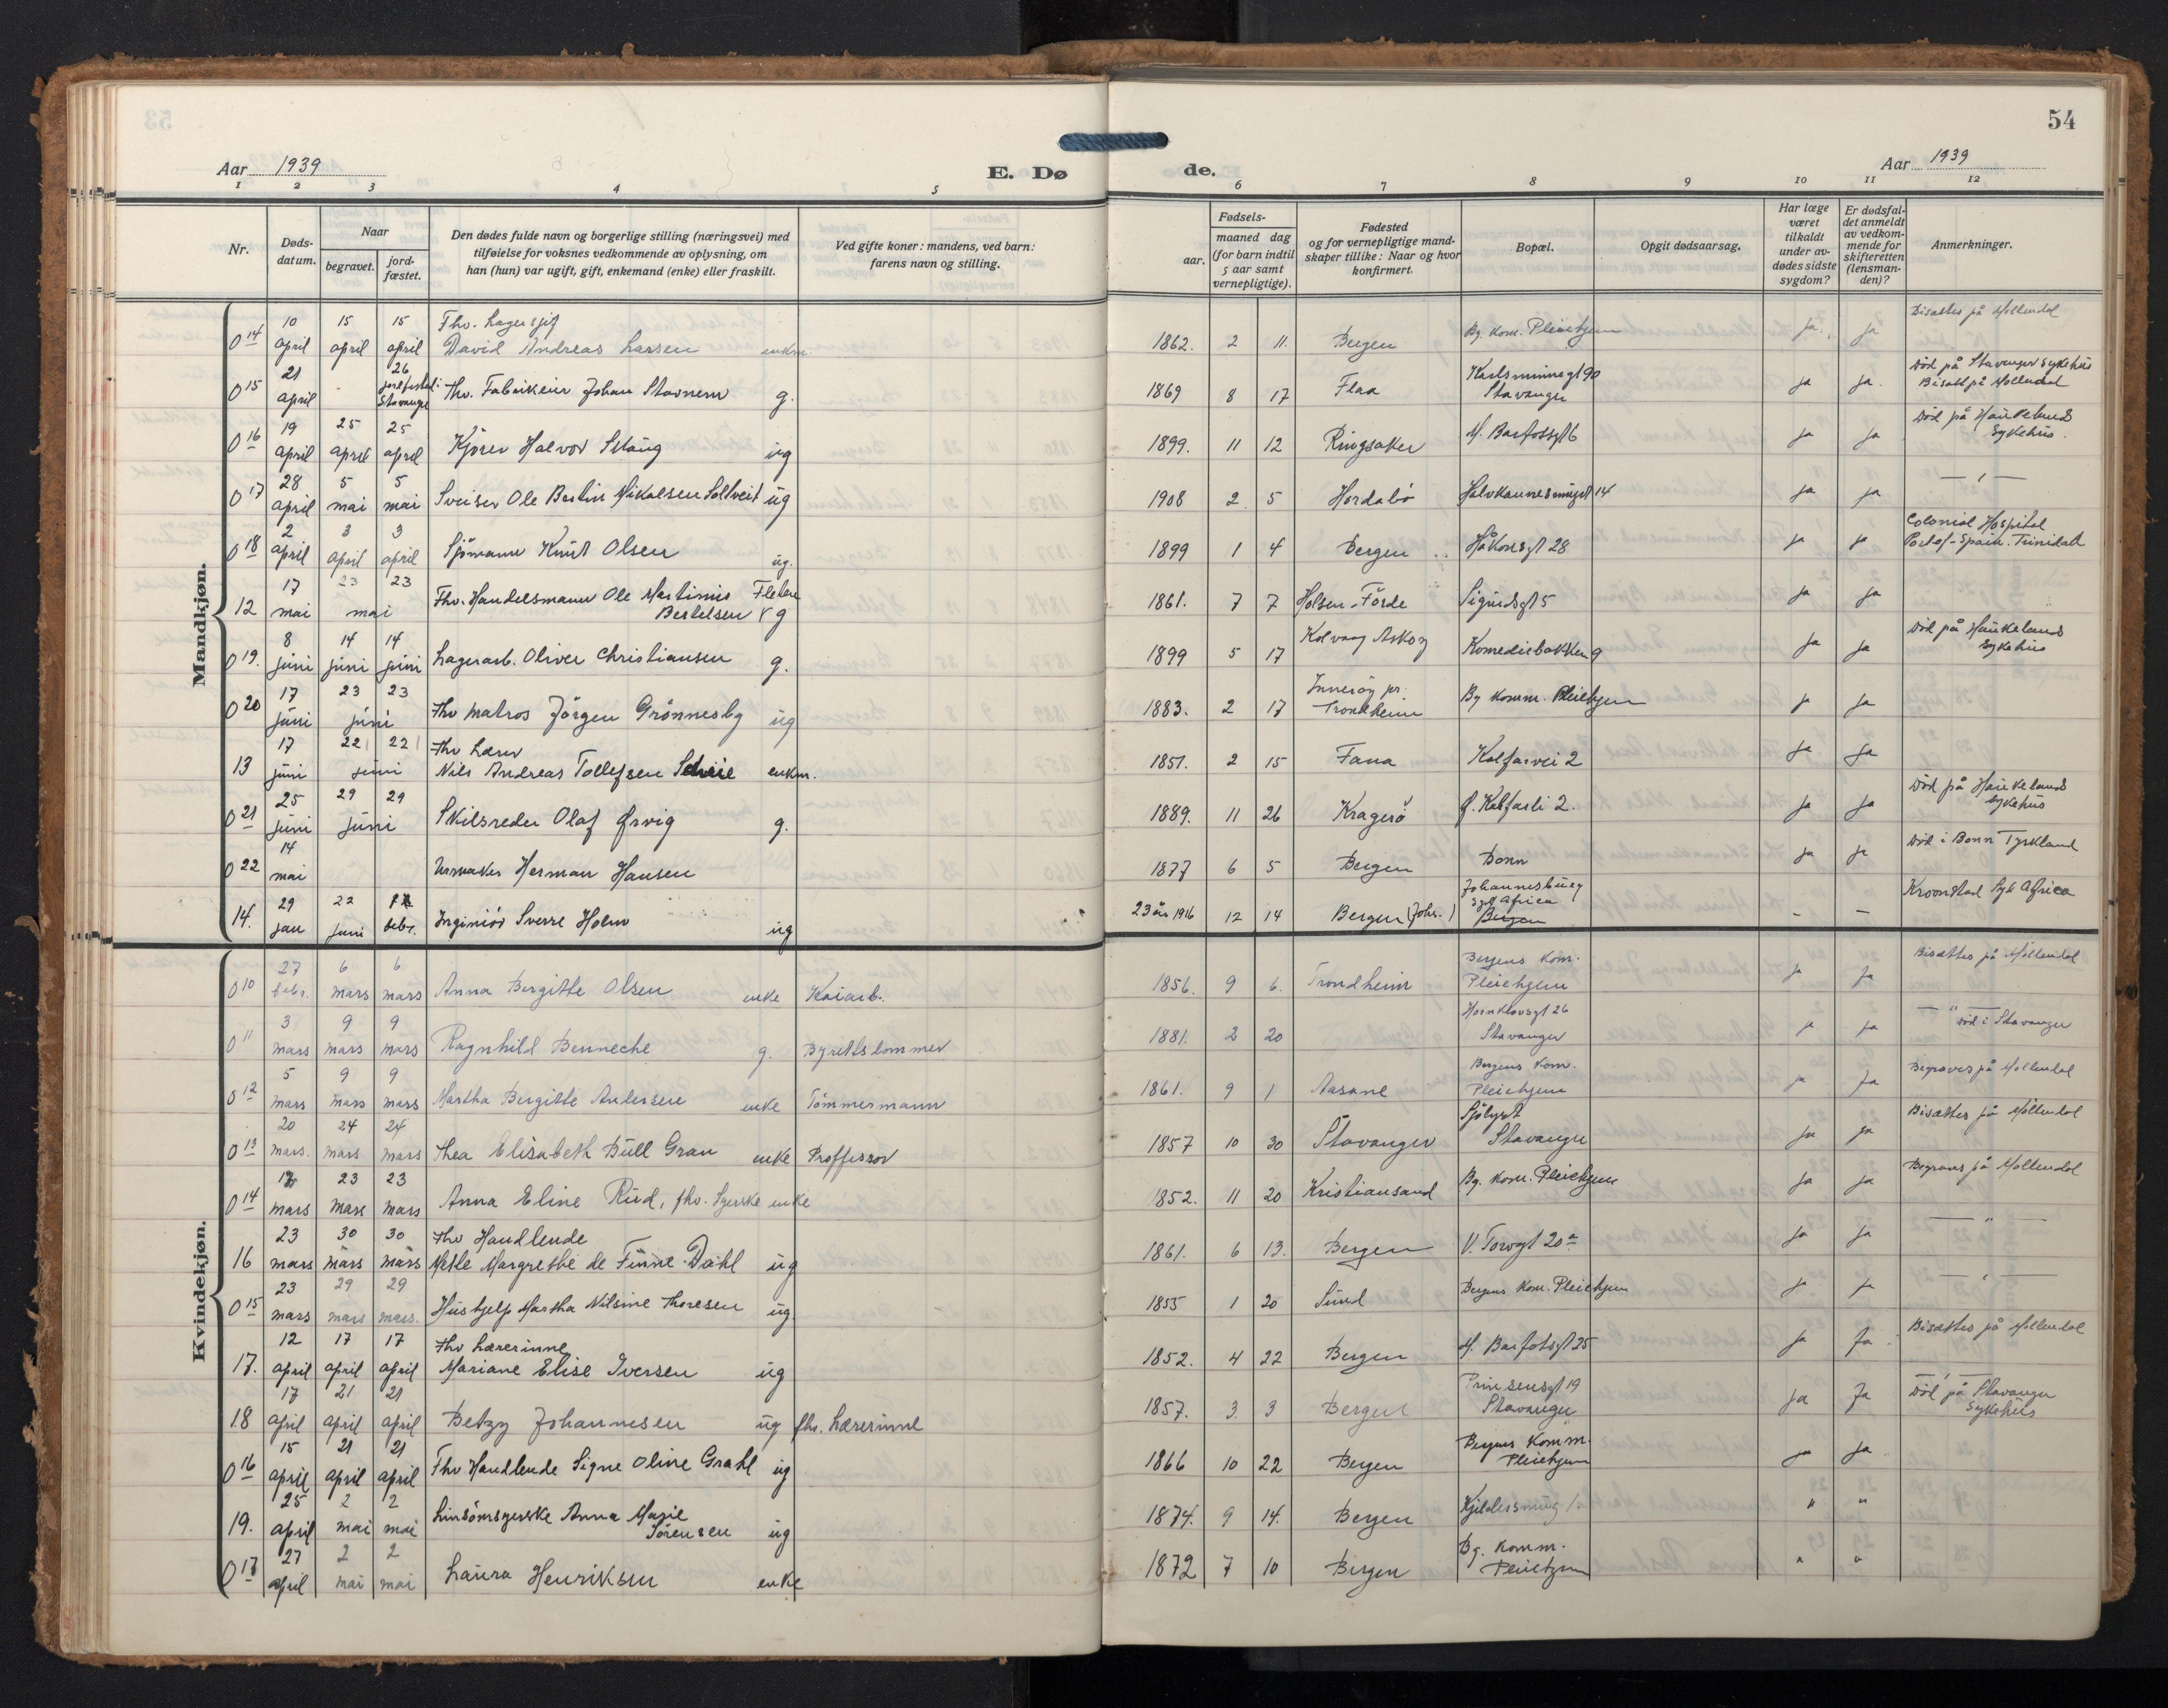 53
54
Aar 1939
E. Dø
de.
Aar 1939
1 2 3 4 5 6 7 8 9 10 11 12
Nr.
Døds-
datum.
Naar
begravet.
jord-
fæstet.
Den dødes fulde navn og borgerlige stilling (næringsvei) med
tilføielse for voksnes vedkommende av oplysning, om
han (hun) var ugift, gift, enkemand (enke) eller fraskilt.
Ved gifte koner: mandens, ved barn:
farens navn og stilling.
Fødsels-
aar.
maaned dag
(for barn indtil
5 aar samt
vernepligtige).
Fødested
og for vernepligtige mand-
skaper tillike: Naar og hvor
konfirmert.
Bopæl.
Opgit dødsaarsag.
Har læge
været
tilkaldt
under av-
dødes sidste
sygdom?
Er dødsfal-
det anmeldt
av vedkom-
mende for
skifteretten
(lensman-
den)?
Anmerkninger.
Mandkjøn.
10 15 15 Fhv. Lagersjef Bisættes på Møllendal
014 april april april David Andreas Larsen enkm. 1862. 2 11. Bergen By. kom. Pleiehjem ja. ja
21 - 26 jordfestet i Karlsminnegt 90 Død på Stavanger Sykehus
015 april Stavanger fhv. Fabrikeier Johan Stavnem g. 1869 8 17 Flaa Stavanger ja ja. Bisatt på Møllendal
19 25 25 Død på Haukelands
016 april april april Kjører Halvor Skaug ug 1899. 11 12 Ringsaker M. Barfotsgt 6 ja ja Sykehus.
28 5 5
017 april mai mai Sveiser Ole Bertin Mikalsen Soltveit ug 1908 2 5 Hordabø Halvkannesmuget 14 ja ja — " —
2 3 3 Colonial Hospital
018 april april april Sjømann Knut Olsen ug. 1899 1 4 Bergen Håkonsgt 28 ja ja Port of-Spain. Trinidad
17 23 23 Fhv. Handelsmann Ole Martinus Fleten
12 mai mai Bertelsen g 1861. 7 7 Holsen-Förde Sigurdsgt 5 ja ja
8 14 14 Kolvaag Askøy Død på Haukelands
019. juni juni juni Lagerarb. Oliver Christiansen g. 1899 5 17 Komediebakken 9 ja ja Sykehus
17 23 23 Innerøy pr.
020 juni juni fhv matros Jörgen Grönnesby ug 1883. 2 17 Trondheim By komm. Pleiehjem ja ja
17 22 22 fhv Lærer
13 juni juni Nils Andreas Tollefsen Scheie enkm. 1851. 2 15 Fana Kalfarvei 2 ja ja
25 29 29 Død på Haukelands
021 juni juni Skibsreder Olaf Ørvig g. 1889. 11 26 Kragerø Ø. Kalfarli 2. ja ja Sykehus
14
022 mai Urmaker Herman Hansen 1877 6 5 Bergen Bonn ja ja Død i Bonn Tyskland
29 22 Johannesburg
Syd Africa
14. jan juni febr. Inginiør Sverre Holm ug 23 år 1916 12 14 Bergen (Johs.) Bergen — — Kroonstad Syd Africa
Kvindekjøn.
27 6 6 Bergens Kom. Bisættes på Møllendal
010 febr. mars mars Anna Bergitte Olsen enke Kaiarb. 1856. 9 6. Trondheim Pleiehjem ja ja
3 9 9 Hornklovsgt 26 — " —
011 mars mars mars Ragnhild Benneche g. Byrettsdommer 1881. 2 20 Stavanger ja ja død i Stavanger
5 9 9 Bergens Kom. Begraves på Møllendal
012 mars mars mars Martha Bergitte Andersen enke Tömmermann 1861. 9 1 Aasane Pleiehjem ja ja
20 24 24 Sjølyst Bisættes på Møllendal
013 mars. mars mars Thea Elisabeth Bull Gran enke Proffessor 1857 10 30 Stavanger Stavanger ja ja
23 23 Begraves på Møllendal
014 mars mars mars Anna Eline Rud, fhv. Syerske enke 1852. 11 20 Kristiansand By. kom. Pleiehjem ja ja
23 30 30 fhv Handlende
16 mars mars mars Mette Margrethe de Finne Dahl ug 1861. 6 13. Bergen V. Torvgt 20a ja ja — " —
23 29 29
015 mars mars mars. Hushjelp Martha Nilsine Thoresen ug. 1855 1 20 Sund Bergens Kom. Pleiehjem ja ja — " —
12 17 17 fhv Lærerinne Bisættes på Møllendal
17. april april april Mariane Elise Iversen ug 1852. 4 22 Bergen M. Barfotsgt 25 ja ja
17 21 21 Prinsensgt 19 — " —
18 april april april Betzy Johannesen ug fhv. Lærerinne 1857. 3. 3 Bergen Stavanger ja ja Død på Stavanger
Sykehus
15 21 21 Bergens Komm.
016 april april april Fhv Handlende Signe Oline Grahl ug 1866 10 22 Bergen Pleiehjem ja ja
25 2 2 Linsömsyerske Anna Marie
19. april mai mai Sörensen ug 1874. 9 14. Bergen Kjeldersmug " "
27 2 2 By. Komm.
017 april mai mai Laura Henriksen enke 1872 7 10 Bergen Pleiehjem " "